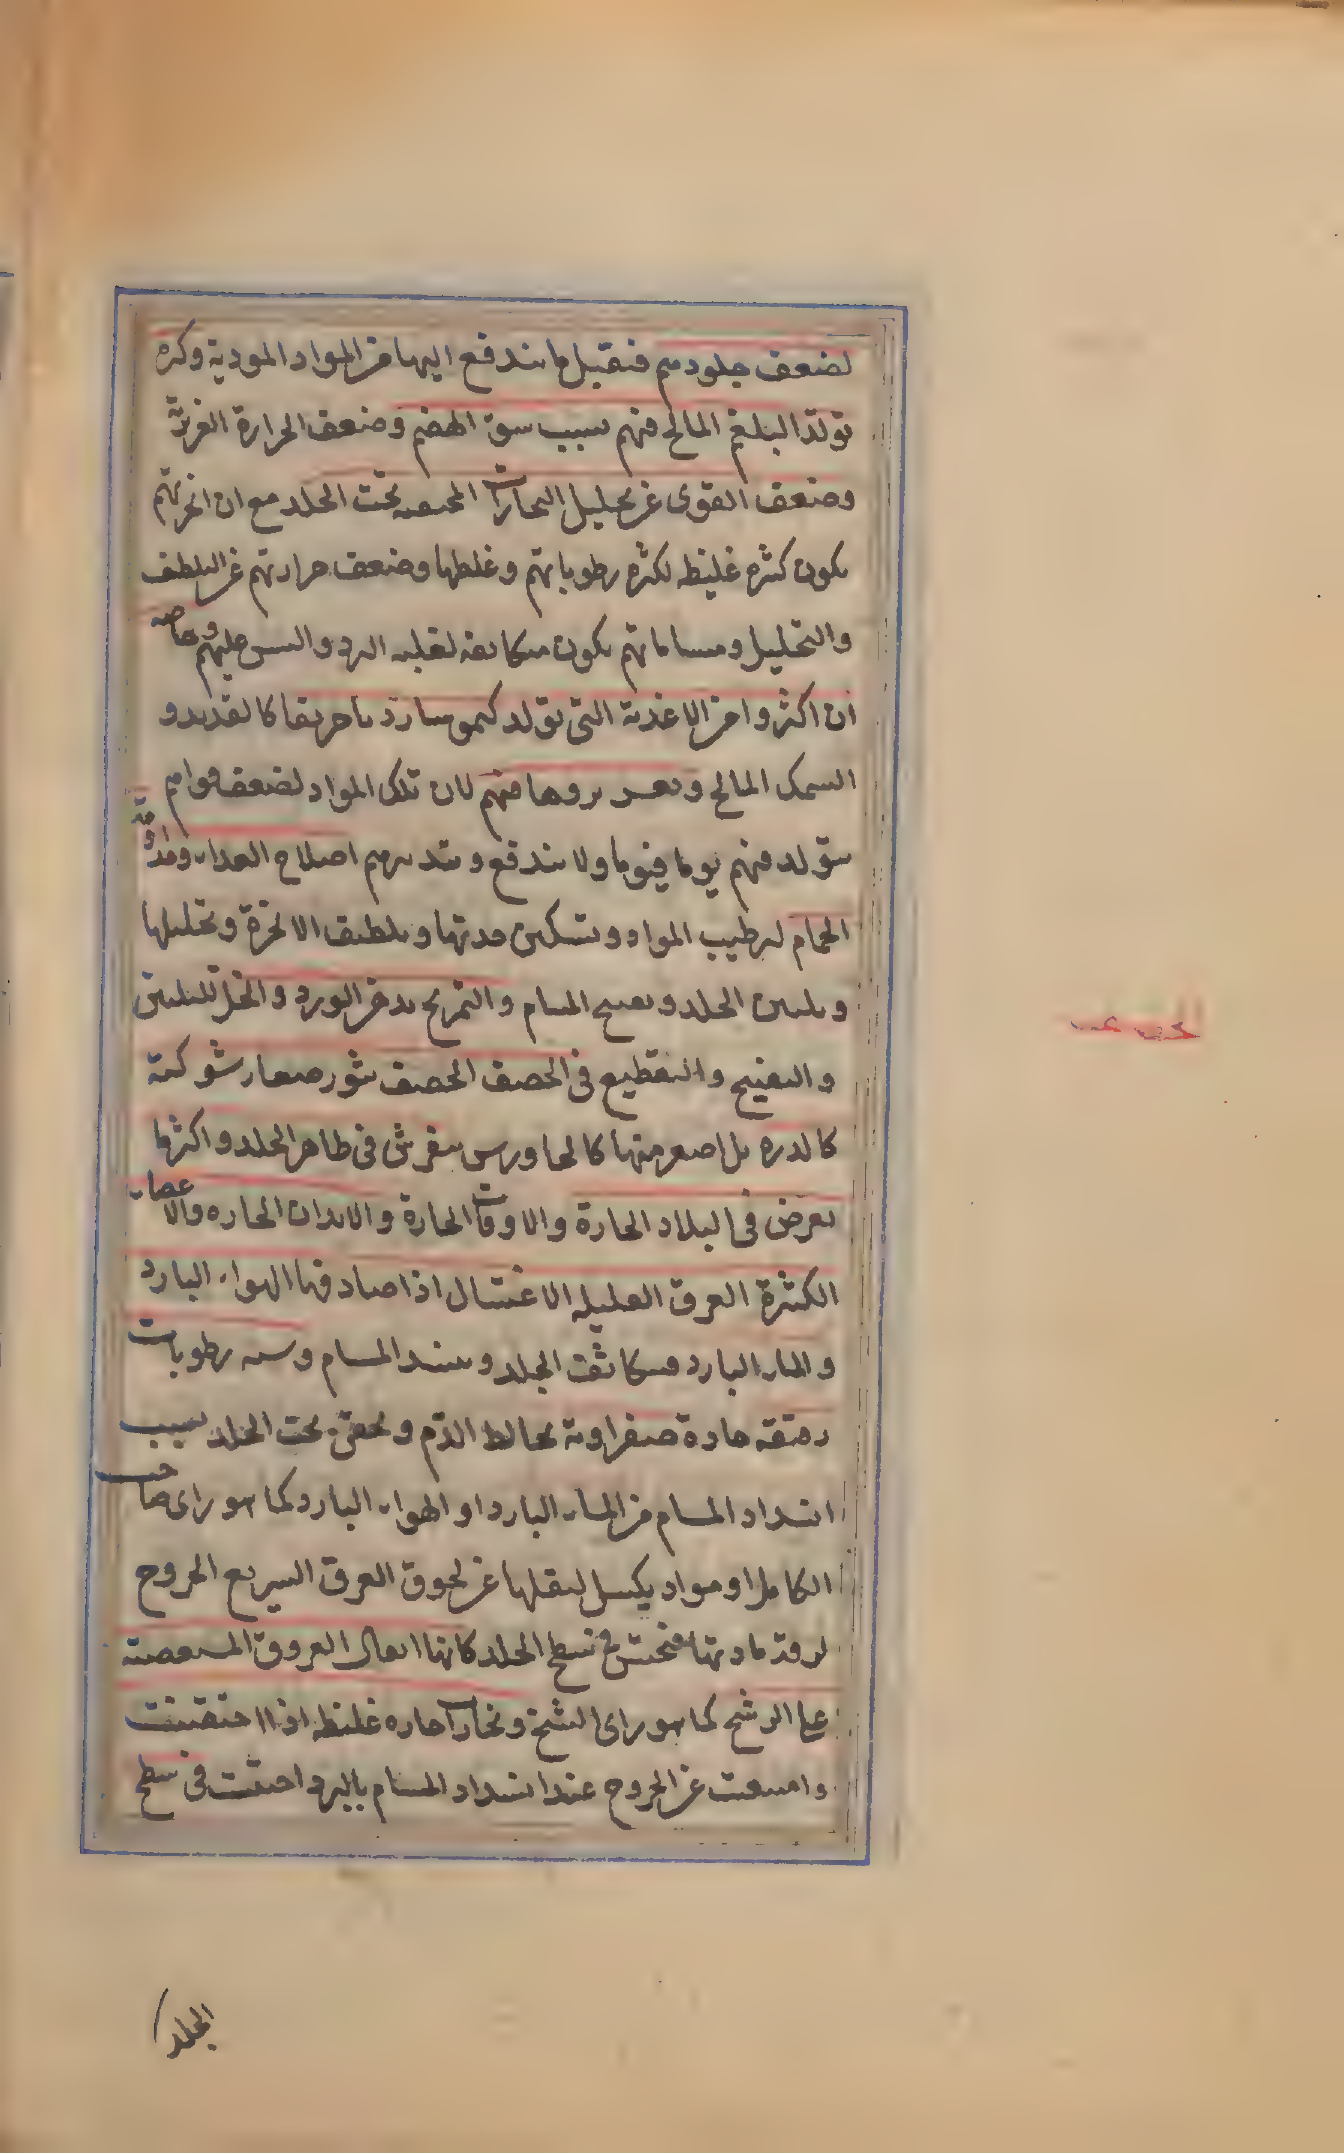 لضعف جلودهم فتقبل ما يندفع اليها من المواد الموذية وكثرة
تولد البلغم المالح فيهم بسبب سوء الهضم وضعف الحرارة الغريزية
وضعف القوى عن تحليل البخارات المحتقنة تحت الجلد مع ان ابخرتهم
يكون كثيره غليظه لكثرة رطوباتهم وغلظها وضعف حرارتهم عن التلطيف
والتحليل ومساماتهم يكون متكاثفه لغلبه البرد واليبس عليهم وخاصه
ان اكثروا من الاغذية التي تولد كيموسا رديا حريفا كالقديد و
السمك المالح ويعسر بروها منهم لان تلك المواد لضعف قواهم
يتولد فيهم يوما فيوما ولا يندفع وتدبيرهم اصلاح الغداء ومداومة
الحمام لترطيب المواد وتسكين حدتها وتلطيف الابخرة وتحليلها
وتليين الجلد وتفتيح المسام والتمريخ بدهن الورد والخل للتليين
والتفتيح والتقطيع في الحصف الحصف بثور صغار شوكية
كالذره بل اصغر منها كالجاورس ينفرش في ظاهر الجلد واكثرها
يعرض في البلاد الحارة والاوقات الحارة والابدان الحاره والاعضاء
الكثيرة العرق القليله الاغتسال اذا صادفها الهواء البارد
والماء البارد فيتكاثف الجلد وينسد المسام وسببه رطوبات
رقيقه حادة صفراوية تخالط الدم وتحتقن تحت الجلد بسبب
انسداد المسام من الماء البارد او الهواء البارد كما هو راى صاحب
الكامل او مواد يكسل لثقلها عن لحوق العرق السريع الخروج
لرقة مادتها فتحتبس في سطح الجلد كانها اثفال العروق المستعصية
على الرشح كما هو راى الشيخ وبخارات حاره غليظه اذا احتقنت
وامتنعت عن الخروج عند انسداد المسام بالبرد احتقنت في سطح
الجلد